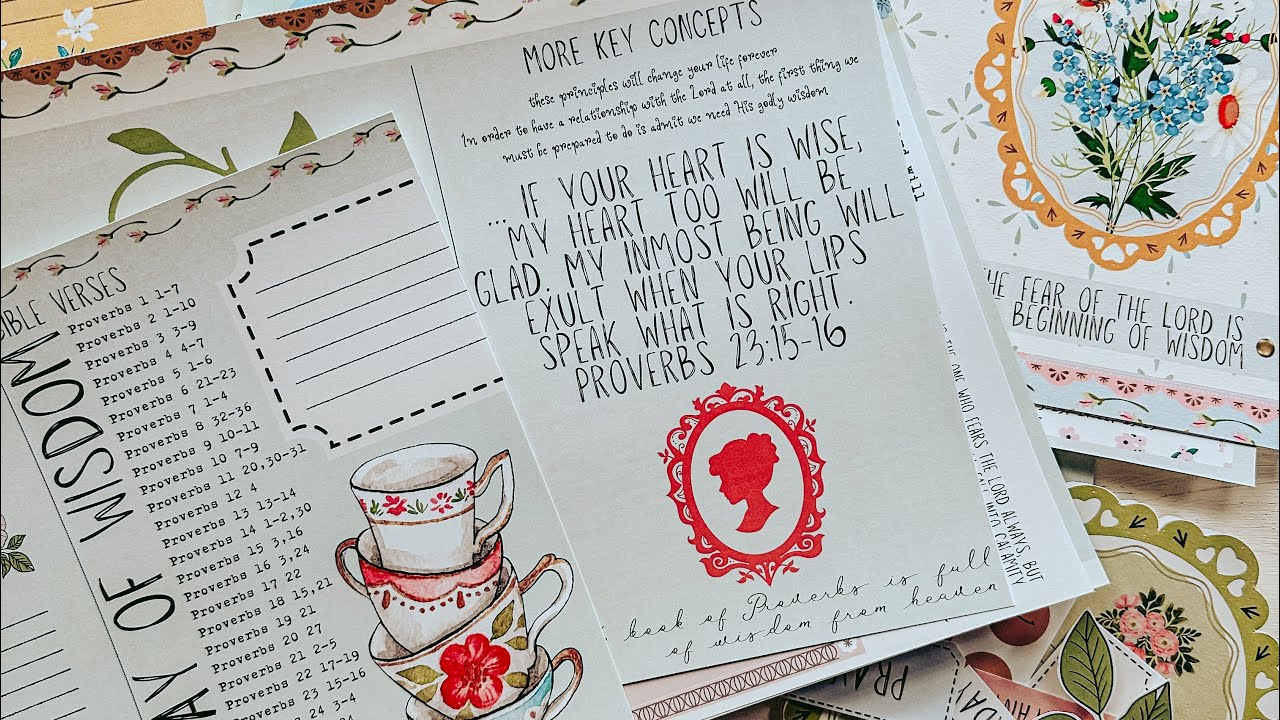 MORE KEY CONCEPTS
these principles will change your life forever
In order to have a relationship with the Lord at all, the first thing we
must be prepared to do is admit we need His godly wisdom
... IF YOUR HEART IS WISE,
MY HEART TOO WILL BE
GLAD. MY INMOST BEING WILL
EXULT WHEN YOUR LIPS
SPEAK WHAT IS RIGHT.
PROVERBS 23:15-16
book of Proverbs is full
of wisdom from heaven
BIBLE VERSES
AY OF WISDOM
Proverbs 1 1-7
Proverbs 2 1-10
Proverbs 3 3-9
Proverbs 4 4-7
Proverbs 5 1-6
Proverbs 6 21-23
Proverbs 7 1-4
Proverbs 8 32-36
Proverbs 9 10-11
Proverbs 10 7-9
Proverbs 11 20,30-31
Proverbs 12 4
Proverbs 13 13-14
Proverbs 14 1-2,30
Proverbs 15 3,16
Proverbs 16 3,24
Proverbs 17 22
Proverbs 18 15,21
Proverbs 19 21
Proverbs 20 27
Proverbs 21 2-5
Proverbs 22 17-19
Proverbs 23 15-16
Proverbs 24 3-4
THE FEAR OF THE LORD IS
BEGINNING OF WISDOM
THE ONE WHO FEARS THE LORD ALWAYS, BUT
INTO CALAMITY
PRAY